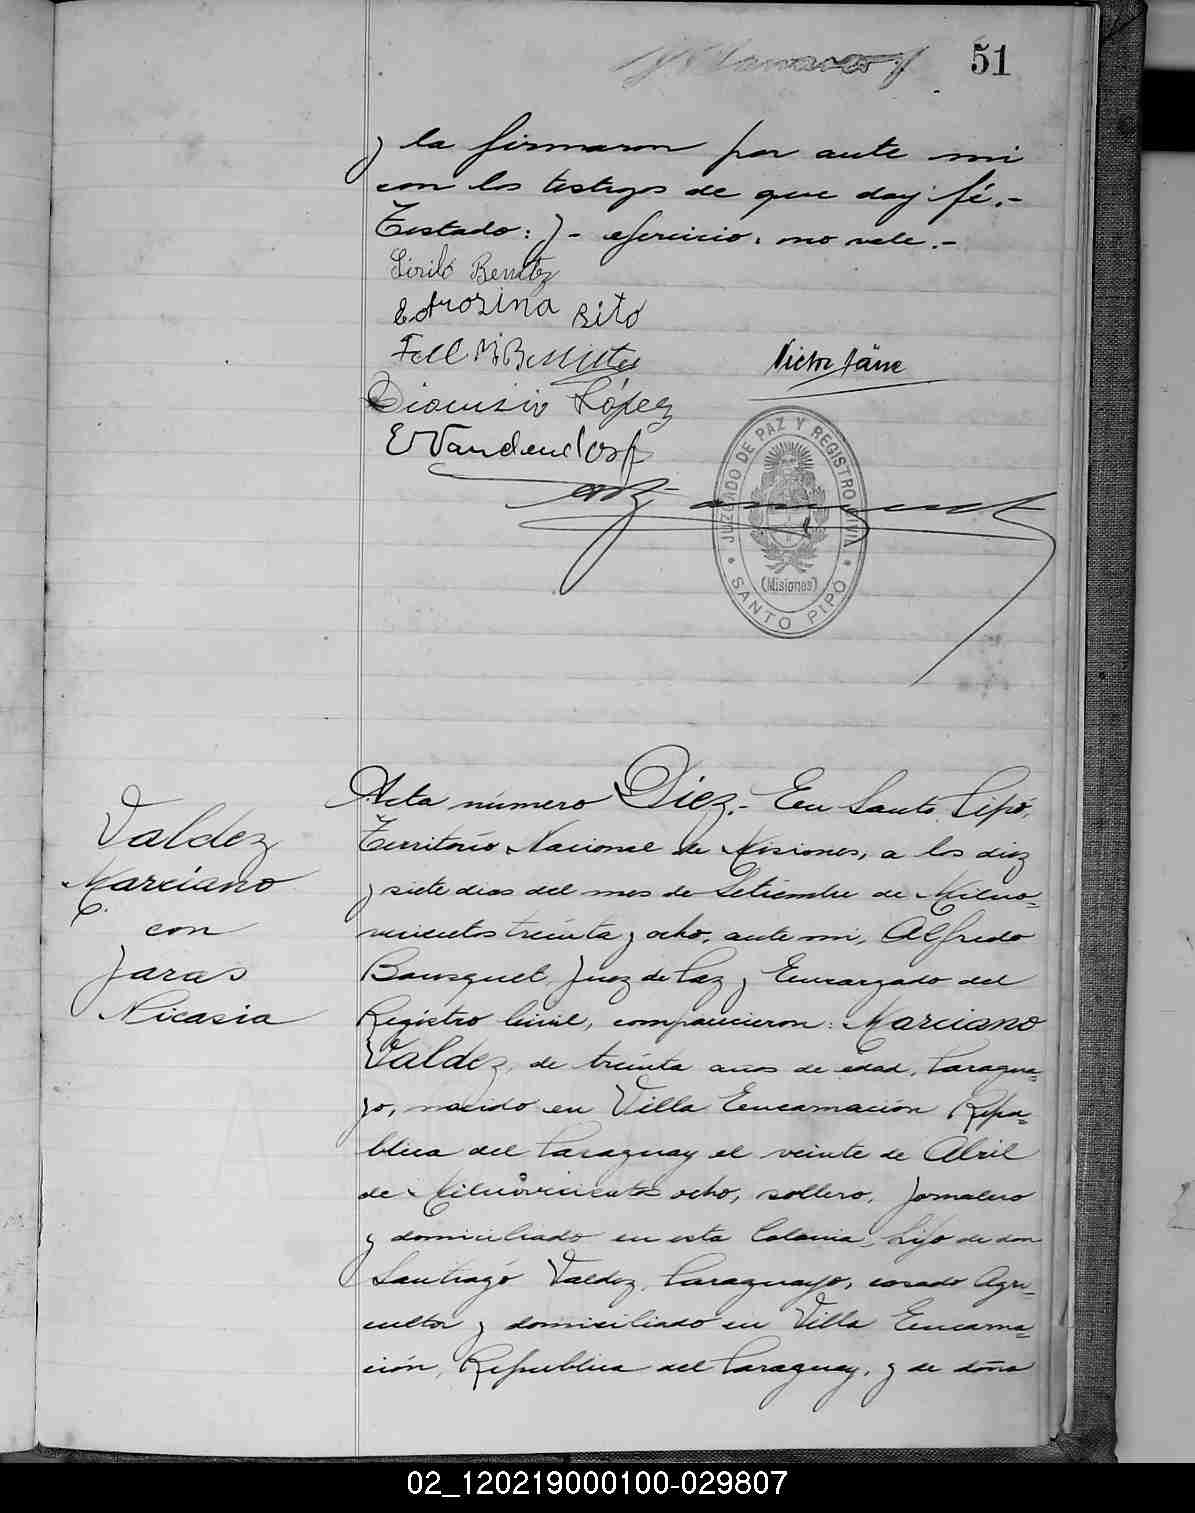 51
y la firmaron por ante mi
con los testigos de que doy fé.-
Testado: y - ejercicio: no vale.-
Sirilo Benitez
Eofrozina Brito
Victor
Dionisio López
E Vandendorf
JUZGADO DE PAZ Y REGISTRO CIVIL
(Misiones)
SANTO PIPÓ
Valdez
Marciano
con
Jaras
Nicasia
Acta número Diez.- En Santo Pipó,
Territorio Nacional de Misiones, a los diez
y siete dias del mes de Setiembre de Milno=
vecientos treinta y ocho, ante mi, Alfredo
Bousquet, Juez de Paz y Encargado del
Registro Civil, comparecieron: Marciano
Valdez, de treinta años de edad, Paragua=
yo, nacido en Villa Encarnación Repú=
blica del Paraguay el veinte de Abril
de Milnovecientos ocho, soltero, Jornalero
y domiciliado en esta Colonia, hijo de don
Santiago Valdez, Paraguayo, casado Agri=
cultor y domiciliado en Villa Encarna=
ción, Republica del Paraguay, y de doña
02_120219000100-029807